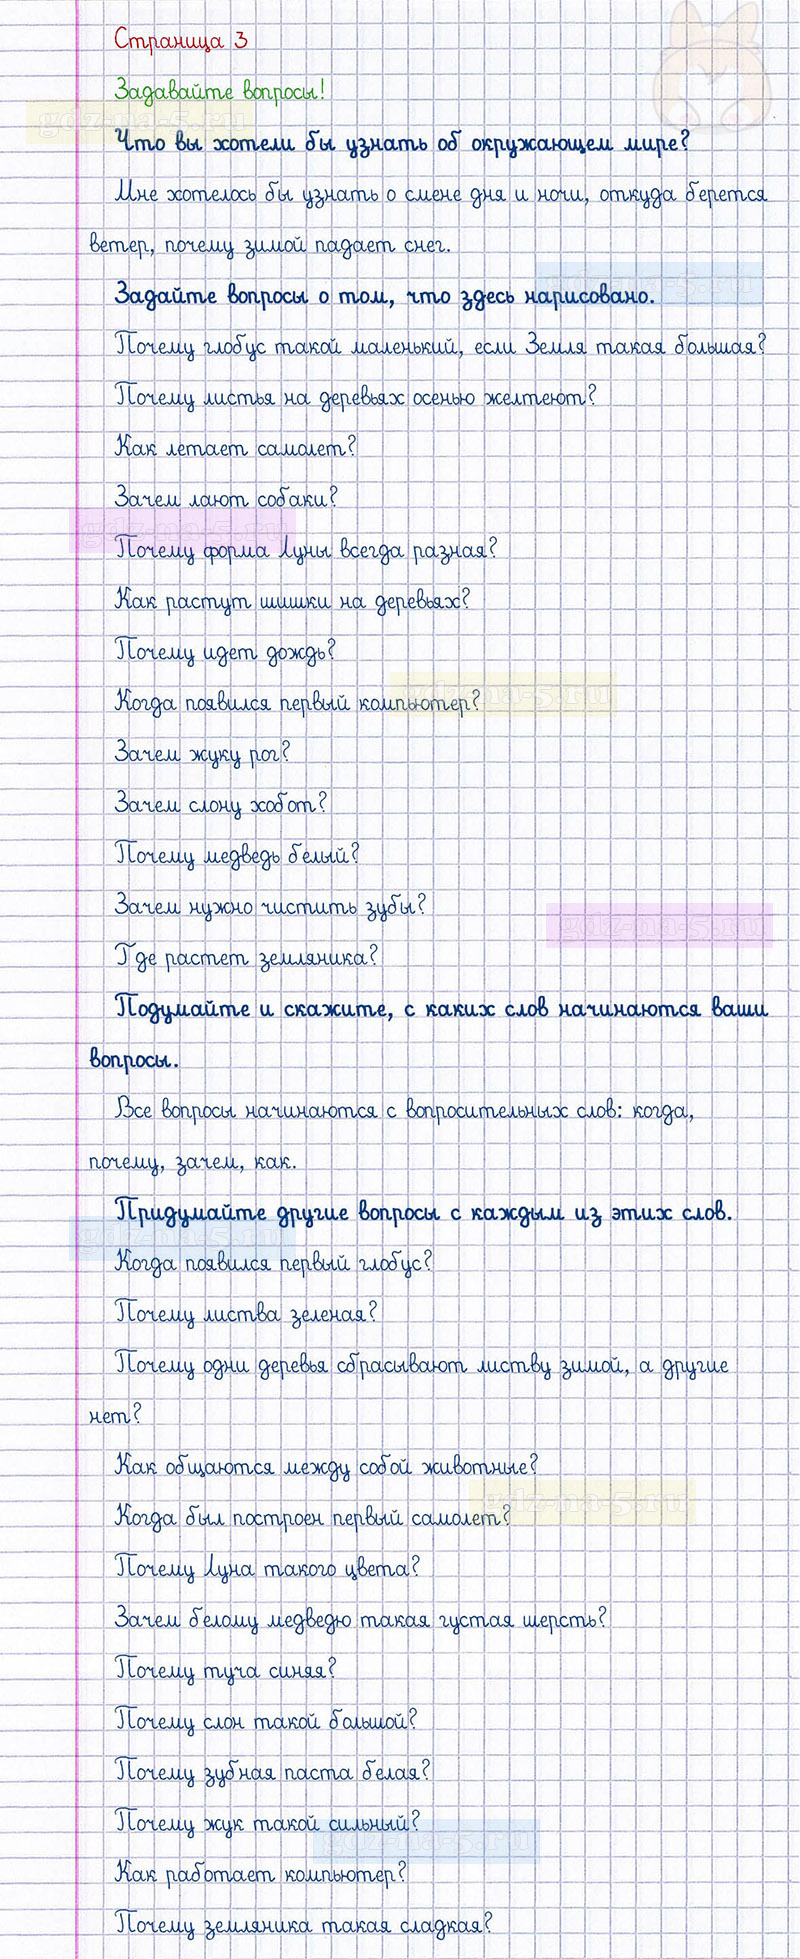 Страница 3
Задавайте вопросы!
gdz-na-5.ru
Что вы хотели бы узнать об окружающем мире?
Мне хотелось бы узнать о смене дня и ночи, откуда берется
ветер, почему зимой падает снег.
gdz-na-5.ru
Задайте вопросы о том, что здесь нарисовано.
Почему глобус такой маленький, если Земля такая большая?
Почему листья на деревьях осенью желтеют?
Как летает самолет?
Зачем лают собаки?
gdz-na-5.ru
Почему форма Луны всегда разная?
Как растут шишки на деревьях?
Почему идет дождь?
gdz-na-5.ru
Когда появился первый компьютер?
Зачем жуку рог?
Зачем слону хобот?
Почему медведь белый?
Зачем нужно чистить зубы?
gdz-na-5.ru
Где растет земляника?
Подумайте и скажите, с каких слов начинаются ваши
вопросы.
Все вопросы начинаются с вопросительных слов: когда,
почему, зачем, как.
Придумайте другие вопросы с каждым из этих слов.
gdz-na-5.ru
Когда появился первый глобус?
Почему листва зеленая?
Почему одни деревья сбрасывают листву зимой, а другие
нет?
Как общаются между собой животные?
gdz-na-5.ru
Когда был построен первый самолет?
Почему Луна такого цвета?
Зачем белому медведю такая густая шерсть?
Почему туча синяя?
Почему слон такой большой?
Почему зубная паста белая?
Почему жук такой сильный?
gdz-na-5.ru
Как работает компьютер?
Почему земляника такая сладкая?